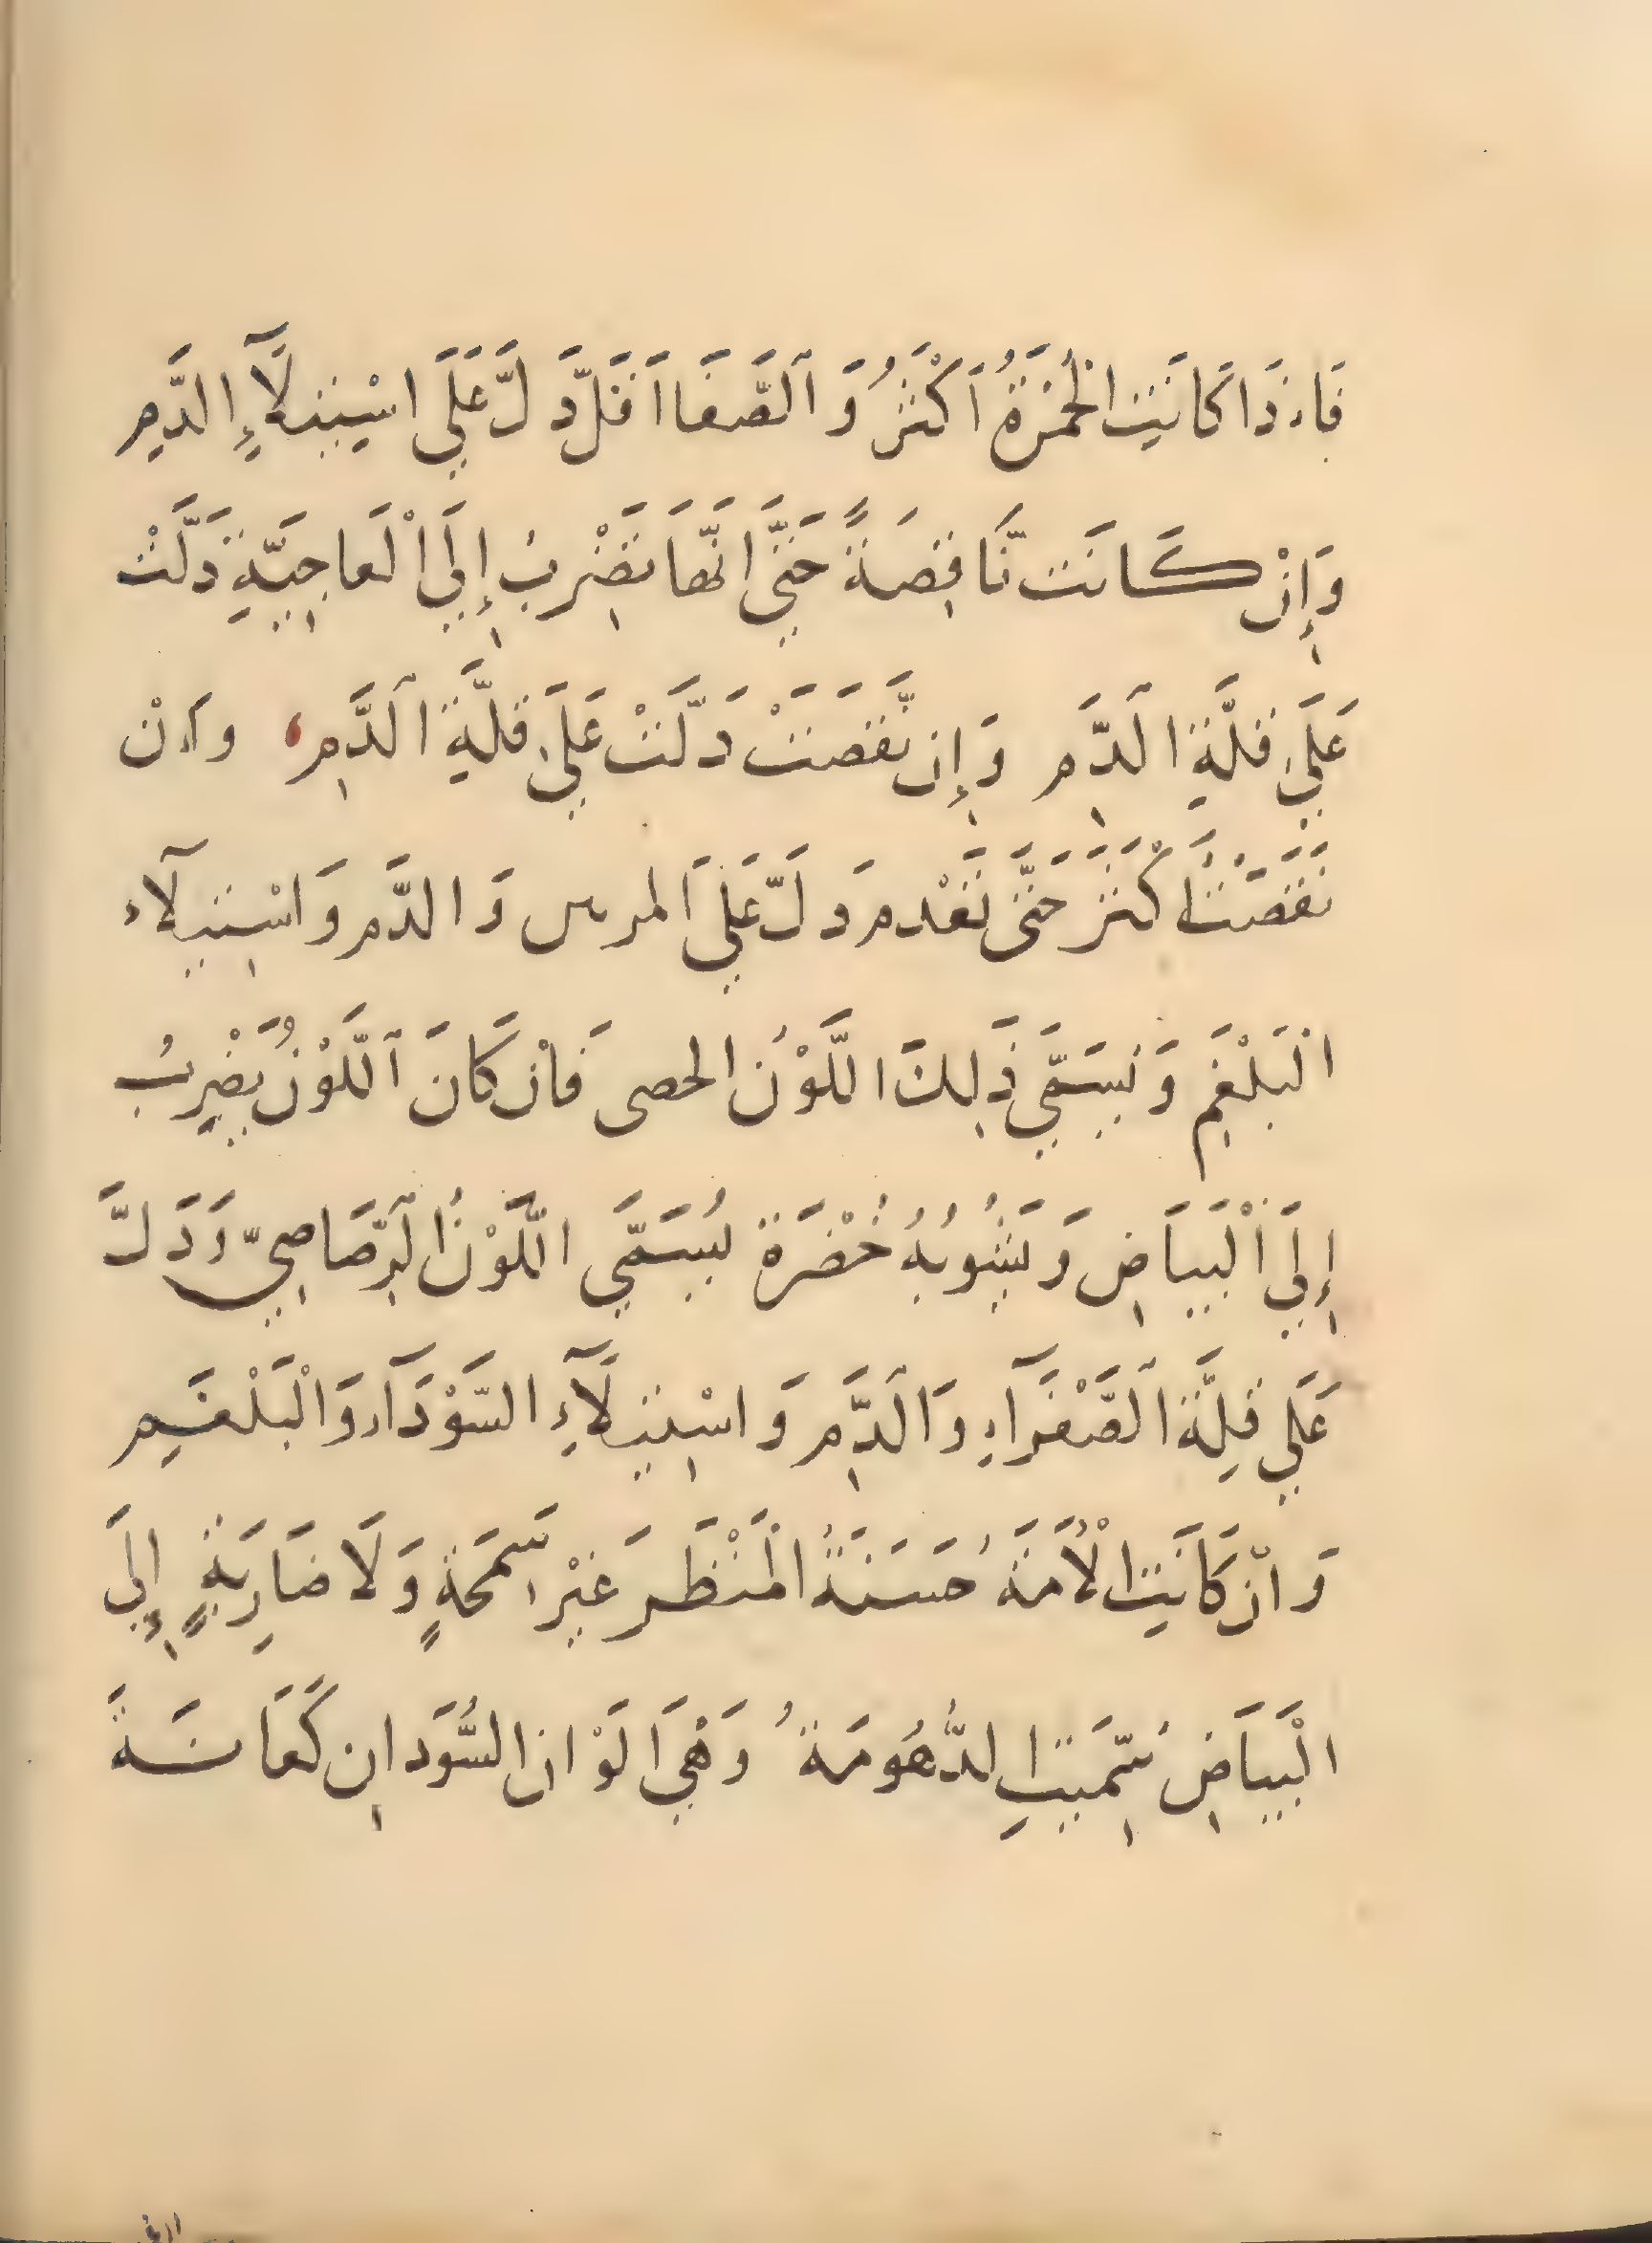 فَاءِذَا كَانَتِ الْحُمْرَةُ اَكْثَرُ وَ اَلصَّفَا اَقَلَّ دَلَّ عَلَي اسْتِيلَآءِ الدَّمِ
وَإِنْ كَانَت نَّاقِصَةً حَتَّي انَّهَا تَضْرِبُ إِلَي الْعَاجِيَّةِ دَلَّتْ
عَلَي قلَّةِ الَدَّمِ وَإِن نَّقَصَتْ دَلَّتْ عَلَي قلَّةِ اَلَدَّمِ وَاءنْ
نَقَصَتْ اَكْثَرَ حَتَّى تَعْدم دَلَّ عَلَيَ المرس وَالدَّم وَاسْتِيلآء
الْبَلْغَمِ وَنُسَمِّي ذَلِكَ اللَّوْنَ الحصى فَاْن كَانَ اَللَّوْنُ يَضْرِبُ
إِلَيَ اْلْبَيَاضِ وَيَشُوبُهُ خُضْرَة يُسَمَّي اللَّوْنُ اَلرَّصَاصِيّ وَدَلَّ
عَلَي قِلَّة اَلصَّفْرَآءِ وَالَدَّمِ وَاسْتِيلَآءِ السَّوْدَآءِ وَالْبَلْغَمِ
وَانْ كَانَتِ الْأَمَةُ حَسَنَةُ الْمَنْظَر غَيْر سَمْحَةٍ وَلَا ضَارِبَةٍ إِلَي
الْبَيَاضِ سُمِّيَتِ الدُّهُومَةُ وَهْيَ اَلَوْان السُّوَدانِ كَعَاسَةً